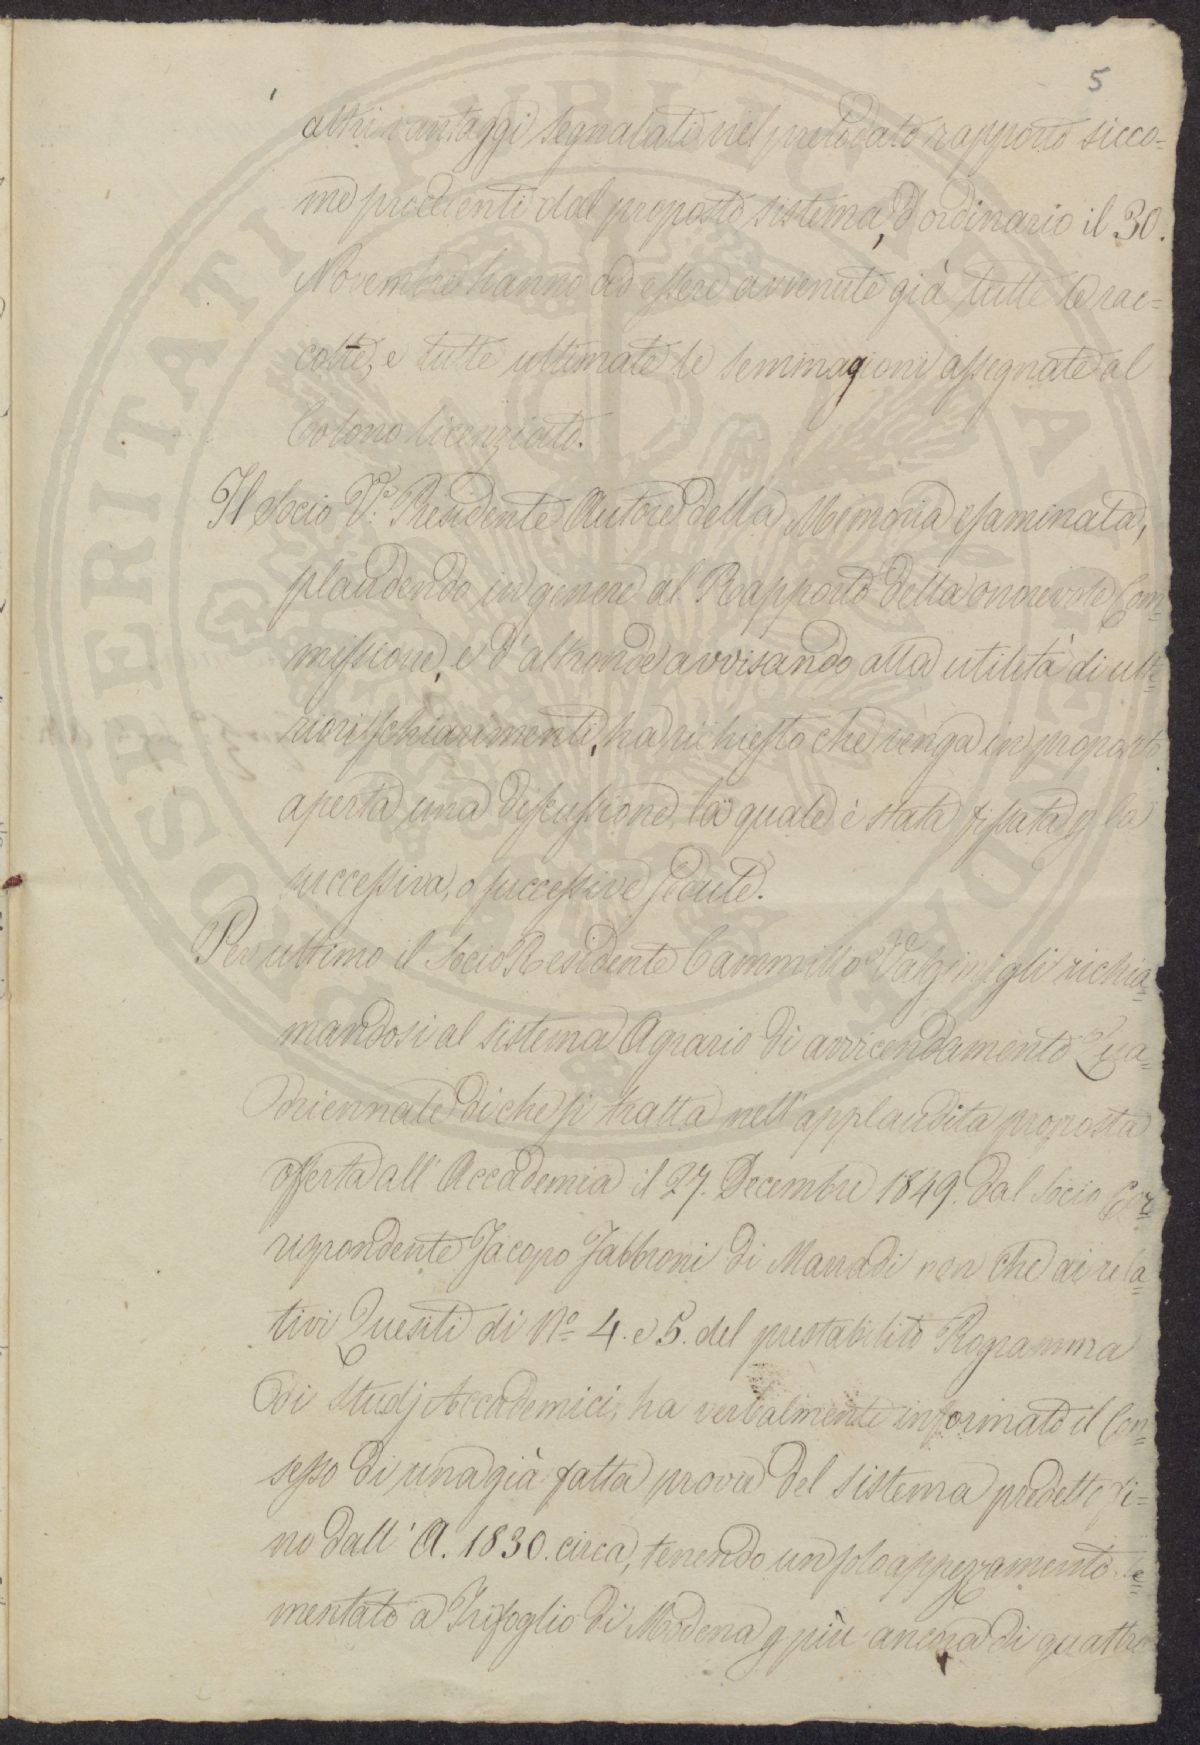 5
altri vantaggi segnalati nel prelodato rapporto sicco=
me procedenti dal proposto sistema, d'ordinario il 30.
Novembre hanno ad essere avvenute già tutte le rac=
colte, e tutte ultimate le seminagioni assegnate al
Colono licenziato.
Il Socio V.e Presidente Autore della Memoria esaminata,
plaudendo in genere al Rapporto della onorevole Com=
missione, e d'altronde avvisando alla utilità di ulte=
riori schiarimenti, ha richiesto che venga in proposito
aperta una discussione, la quale è stata fissata p la
successiva, o successive sedute.
Per ultimo il Socio Residente Cammillo Valgimigli richia=
mandosi al sistema Agrario di avvicendamento Qua=
driennale di che si tratta nell'applaudita proposta
offerta all'Accademia il 27. Decembre 1849. dal Socio Cor=
rispondente Jacopo Fabbroni di Marradi non che ai rela=
tivi Quesiti di No 4. e 5. del prestabilito Programma
di Studj Accademici, ha verbalmente informato il Con=
sesso di una già fatta prova del sistema predetto fi=
no dall'A. 1830. circa, tenendo un solo appezzamento se=
mentato a Trifoglio di Modena p più ancora di quattro
PROSPERITATI PUBLICAE AUGENDAE